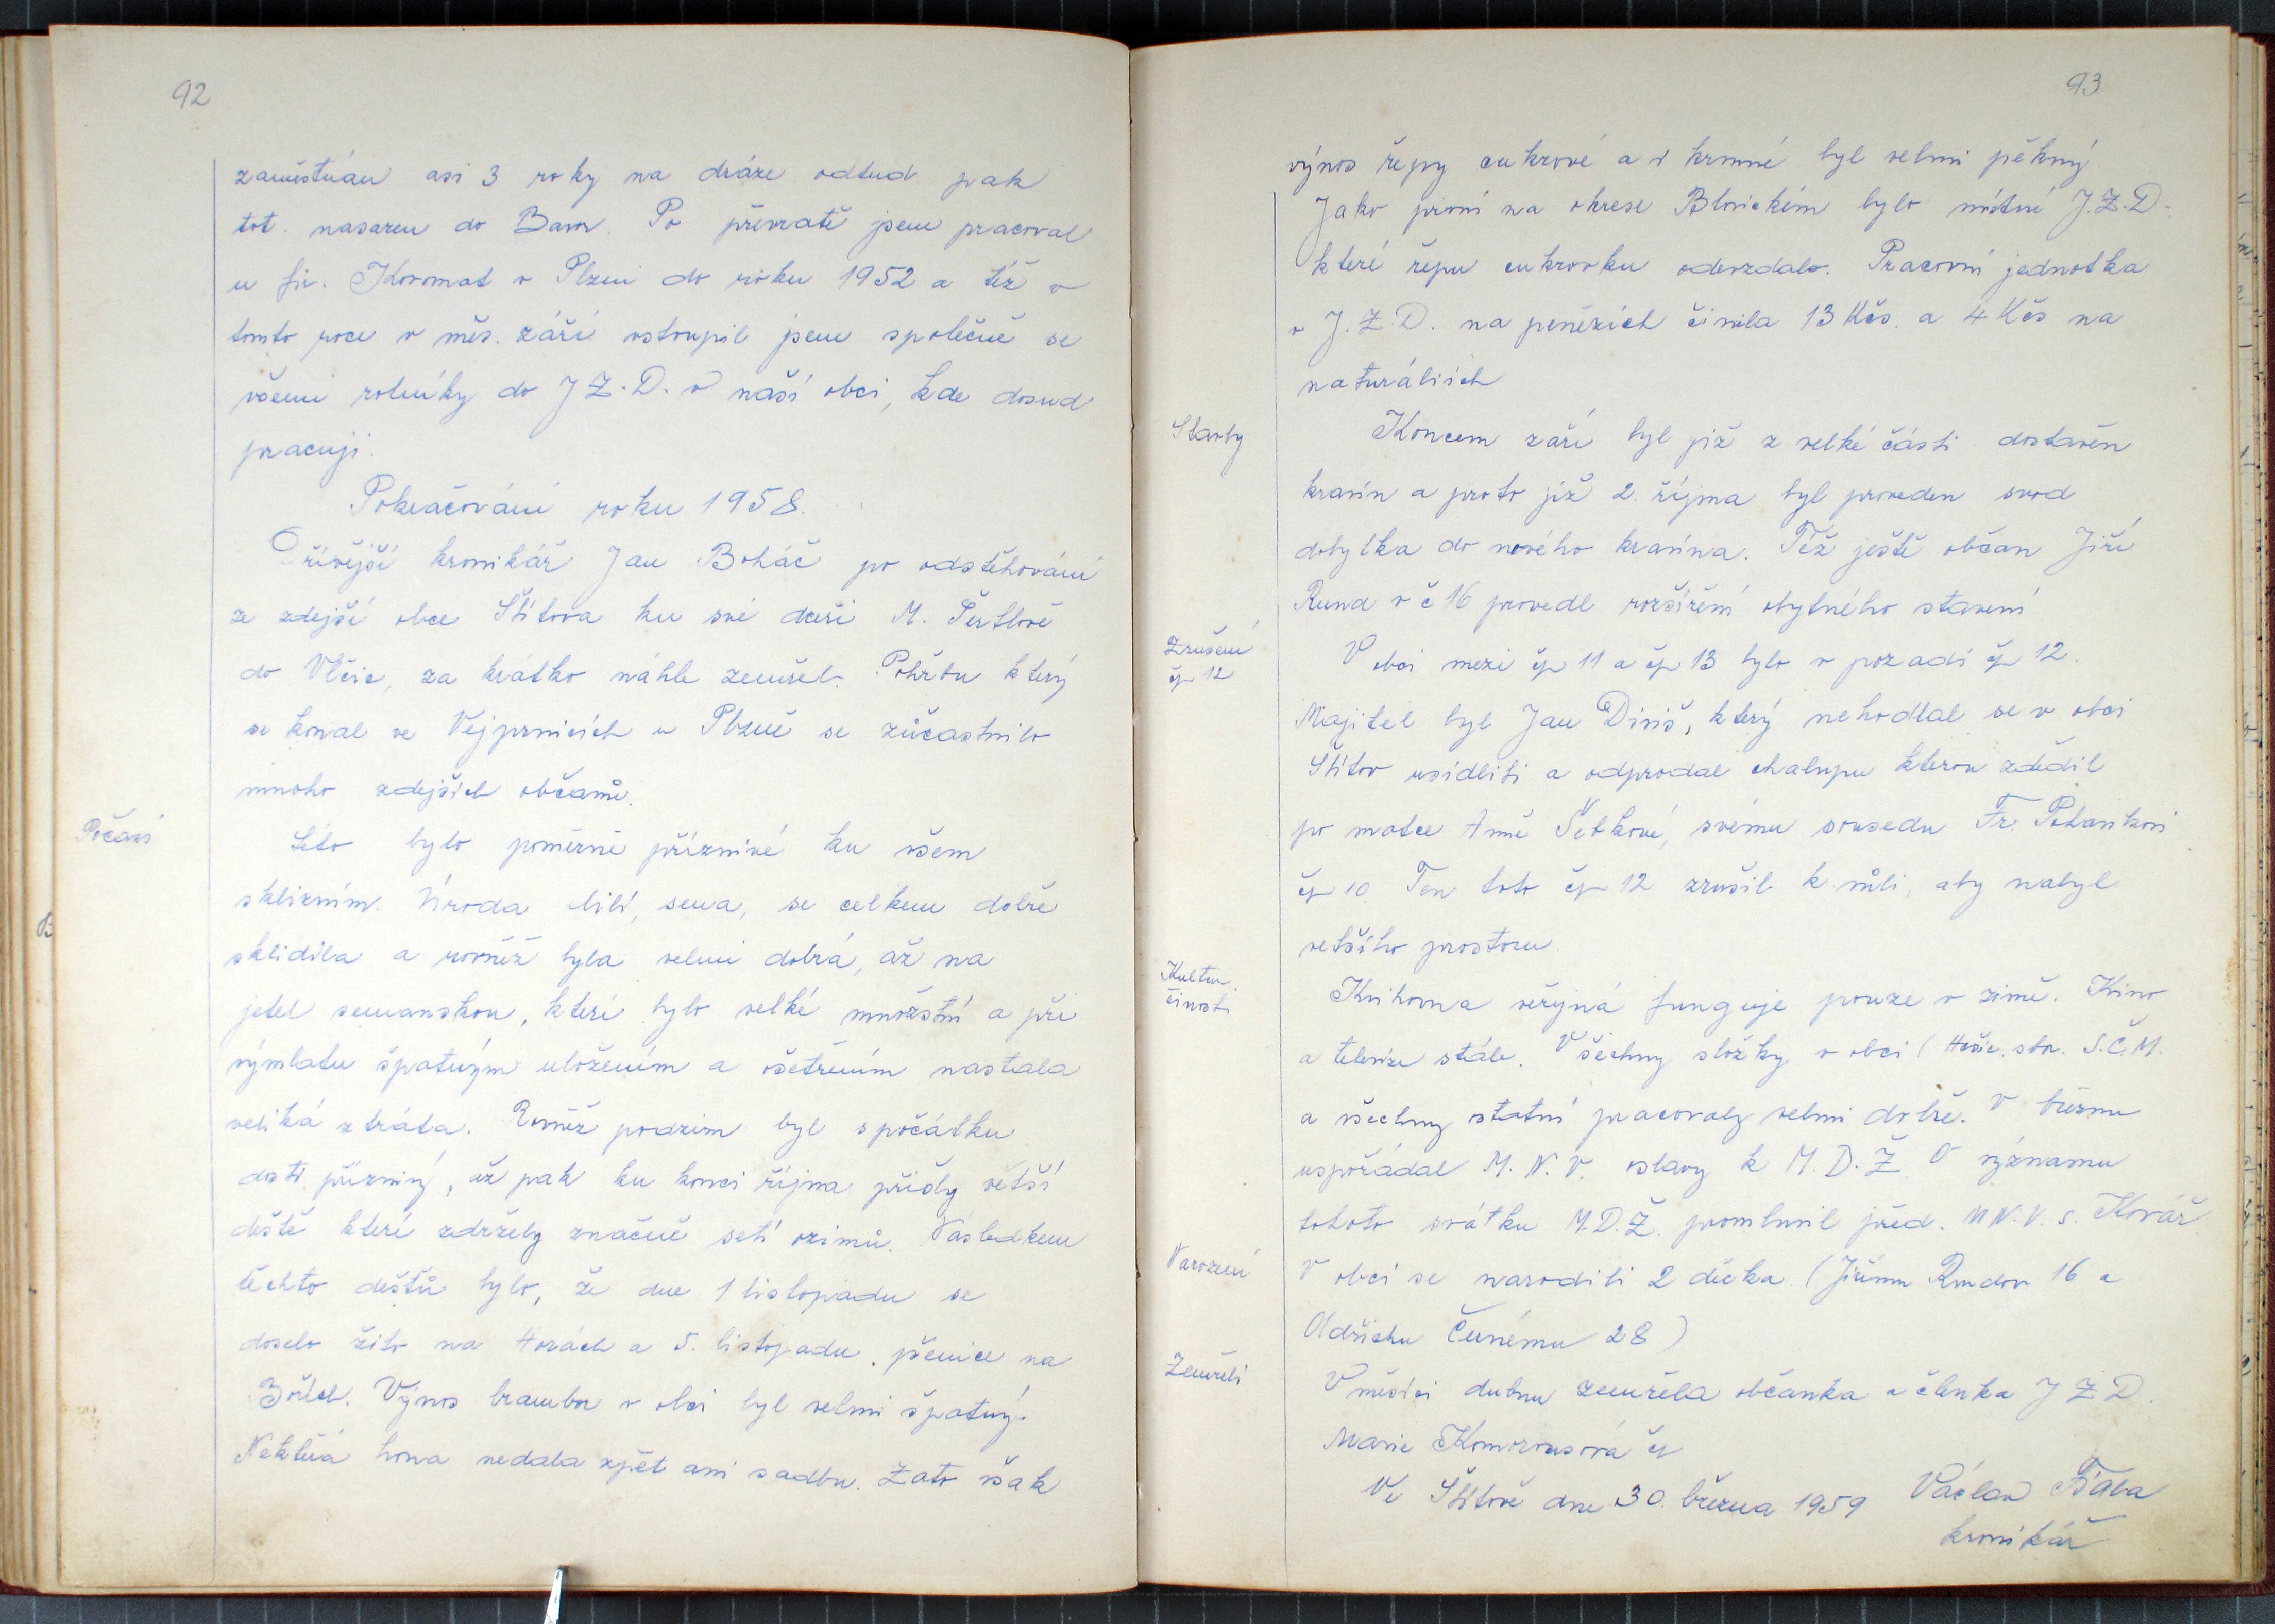 92
zaměstnán asi 3 roky na dráze odtud pak
tot. nasazen do Bavor. Po převratě jsem pracoval
u fir. Kovomat v Plzni do roku 1952 a též v
tomto roce v měs. září vstoupil jsem společně se
všemi rolníky do J Z. D. v naší obci, kde dosud
pracuji.
Pokračování roku 1958.
Dřívější kronikář Jan Boháč po odstěhování
ze zdejší obce Štítova ku své dceři M.
do Vlčic, za krátko náhle zemřel. Pohřbu který
se konal ve Vejprnicích u Plzně se zůčastnilo
mnoho zdejších občanů.
Počasí
Léto bylo poměrně příznivé ku všem
sklizním. Úroda obilí, sena, se celkem dobře
sklidila a rovněž byla velmi dobrá, až na
jetel semanskou, které bylo velké množství a při
výmlatu špatným uložením a ošetřením nastala
veliká ztráta. Rovněž podzim byl spočátku
dosti příznivý, až pak ku konci října přišly větší
deště které zdržely značně setí ozimů. Následkem
těchto dešťů bylo, že dne 1 listopadu se
doselo žito na Horách a 5. listopadu. pšenice na
Výnos brambor v obci byl velmi špatný.
Některá hona nedala zpět ani sadbu. Zato však
93
výnos řepy cukrové a i krmné byl velmi pěkný.
Jako první na okrese Blovickém bylo místní J.Z.D.
které řepu cukrovku odevzdalo. Pracovní jednotka
v J.Z.D. na penězích činila 13 Kčs. a 4 Kčs na
naturáliích
Stavby
Koncem září byl již z velké části dostavěn
kravín a proto již 2. října byl proveden svod
dobytka do nového kravína. Též ještě občan Jiří
Rund v č 16 provedl rozšíření obytného stavení
Zrušení
čp 12
V obci mezi čp 11 a čp 13 bylo v pozadí čp 12.
Majitel byl Jan Diviš, který nehodlal se v obci
Štítov usídliti a odprodal chalupu kterou zdědil
po matce Anně Šetkové, svému sousedu Fr.
čp 10. Ten toto čp 12 zrušil k vůli, aby nabyl
většího prostoru
Kultur.
činost
Knihovna veřejná funguje pouze v zimě. Kino
a televize stále. Všechny složky v obci (Hasič. sbor. S.Č.M.
a všechny ostatní pracovaly velmi dobře. V březnu
uspořádal M. N. V. oslavy k M. D. Ž. O významu
tohoto svátku M.D.Ž. promluvil před. M N. V. s. Kovář
Narození
V obci se narodili 2 děcka (Jiřímu Rundov 16 a
Oldřichu Černému 28)
Zemřeli
V měsíci dubnu zemřela občanka a členka J Z D.
Marie Komorousová čp
Ve Štítově dne 30. března 1959 Václav Fiala
kronikář